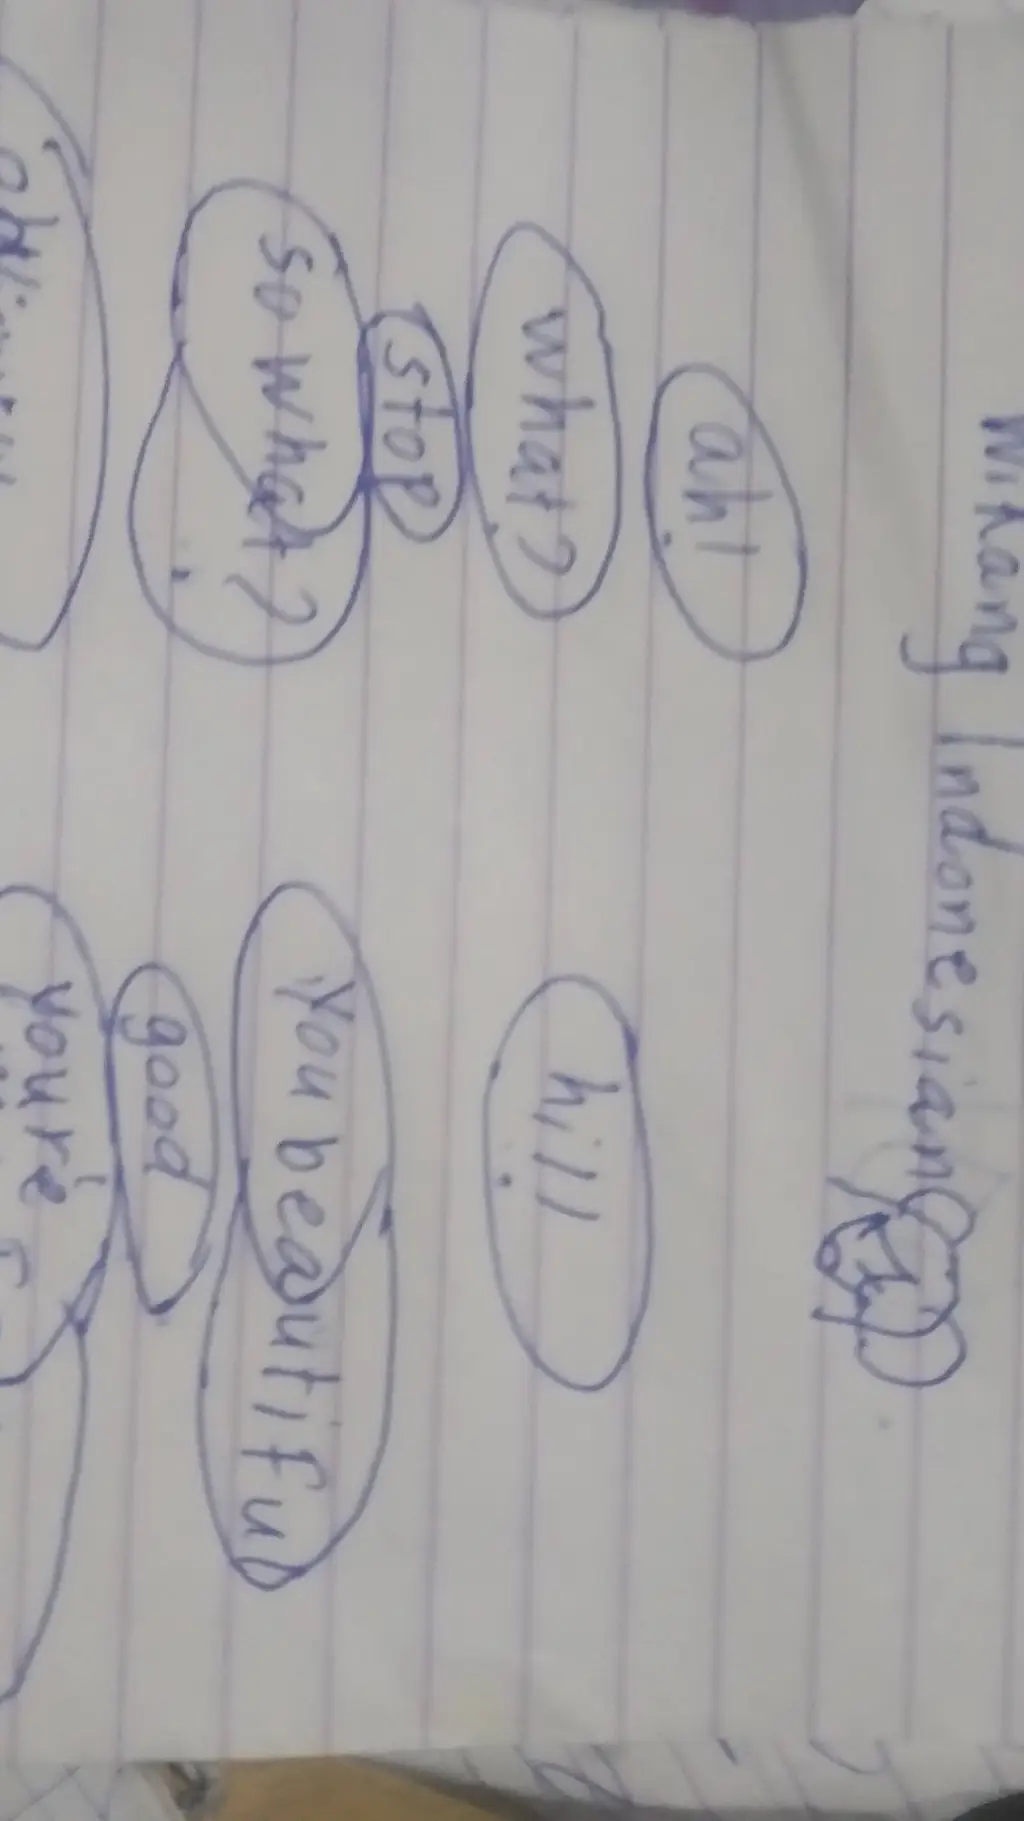 Wikang Indonesian
ah!
what? hi!!
stop
so what? You beautiful
good
you're